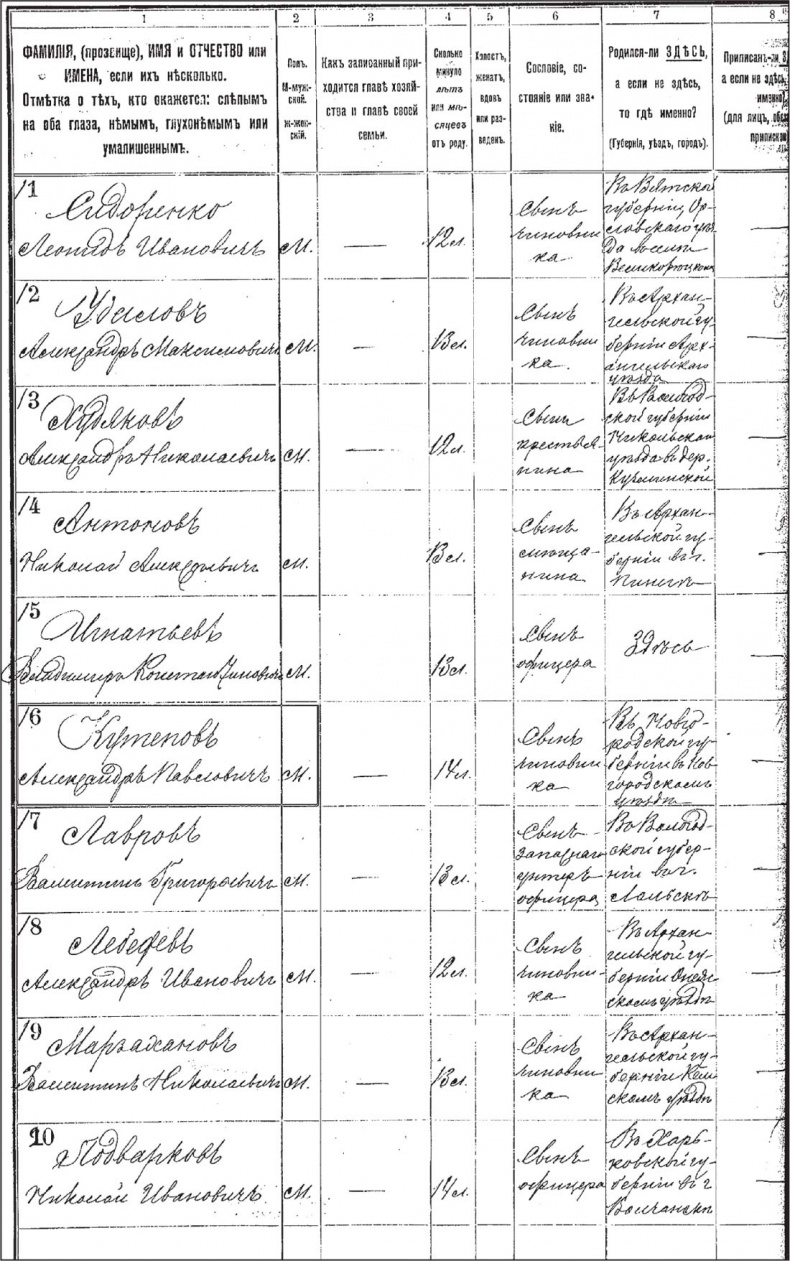 1
2
3
4
5
6
7
8
ФАМИЛІЯ, (прозвище), ИМЯ и ОТЧЕСТВО или
ИМЕНА, если ихъ нѣсколько.
Отмѣтка о тѣхъ, кто окажется: слѣпымъ
на оба глаза, нѣмымъ, глухонѣмымъ или
умалишеннымъ.
Полъ.
М-муж-
ской.
Ж-жен-
скій.
Какъ записанный при-
ходится главѣ хозяй-
ства и главѣ своей
семьи.
Сколько
минуло
лѣтъ
или мѣ-
сяцевъ
отъ роду.
Холостъ,
женатъ,
вдовъ
или раз-
веденъ.
Сословіе, со-
стояніе или зва-
ніе.
Родился-ли ЗДѢСЬ,
а если не здѣсь,
то гдѣ именно?
(Губернія, уѣздъ, городъ).
Приписанъ-ли
а если не здѣсь
именно?
(для лицъ,
приписной
1
Сидоренко
Леонидъ Ивановичъ
М.
—
12 л.
Сынъ
чиновни
ка
Въ Вятской
губерніи, Ор-
ловскаго уѣз
да
Великорѣцкомъ
2
Удаловъ
Александръ Максимовичъ
М.
—
13 л.
Сынъ
чиновни
ка.
Въ Архан-
гельской гу-
берніи Арх-
ангельскаго
уѣзда
3
Худяковъ
Александръ Николаевичъ
М.
—
12 л.
Сынъ
крестья-
нина
Въ Вологод-
ской губерніи
Никольскаго
уѣзда въ дер.
4
Антоновъ
Николай
М.
—
13 л.
Сынъ
мѣща-
нина
Въ Архан-
гельской гу-
берніи въ г.
Пинегѣ
5
Игнатьевъ
Владимиръ Константиновичъ
М.
—
13 л.
Сынъ
офицера
Здѣсь
6
Кутеповъ
Александръ Павловичъ
М.
—
14 л.
Сынъ
чиновни
ка
Въ Новго-
родской гу-
берніи въ Нов
городскомъ
уѣздѣ
7
Лавровъ
Валентинъ Григорьевичъ
М.
—
13 л.
Сынъ
запаснаго
унтеръ
офицера
Въ Вологод-
ской губер-
ніи въ г.
Лальскѣ
8
Лебедевъ
Александръ Ивановичъ
М.
—
12 л.
Сынъ
чиновни-
ка
Въ Архан-
гельской гу-
берніи Онеж
скомъ уѣздѣ
9
Маргахановъ
Валентинъ Николаевичъ
М.
—
13 л.
Сынъ
чиновни
ка
Въ Архан-
гельской гу-
берніи Кем
скомъ уѣздѣ
10
Подварковъ
Николай Ивановичъ
М.
—
14 л.
Сынъ
офицера
Въ Харь-
ковской гу-
берніи въ г
Волчанскѣ